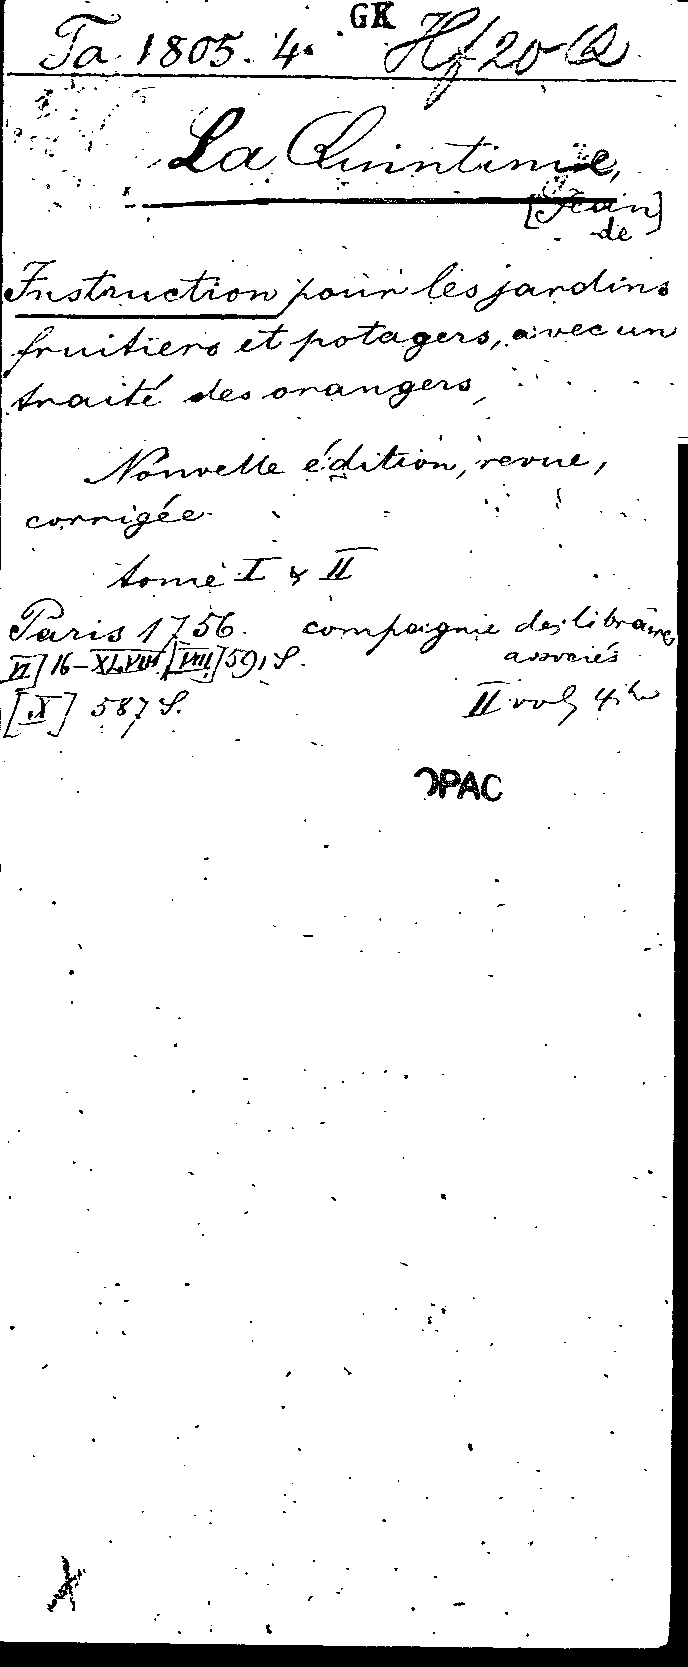 GK
Ta 1805. 4. Hf 20 Q
La Quintinie,
[Jean]
de
Instruction pour les jardins
fruitiers et potagers, avec un
traité des orangers,
Nouvelle édition, revue,
corrigée
tome I & II
Paris 1756. compagnie des libraires
associés
VI] 16-XLVIII [VIII] 591 S.
[X] 587 S. II vol 4to
OPAC